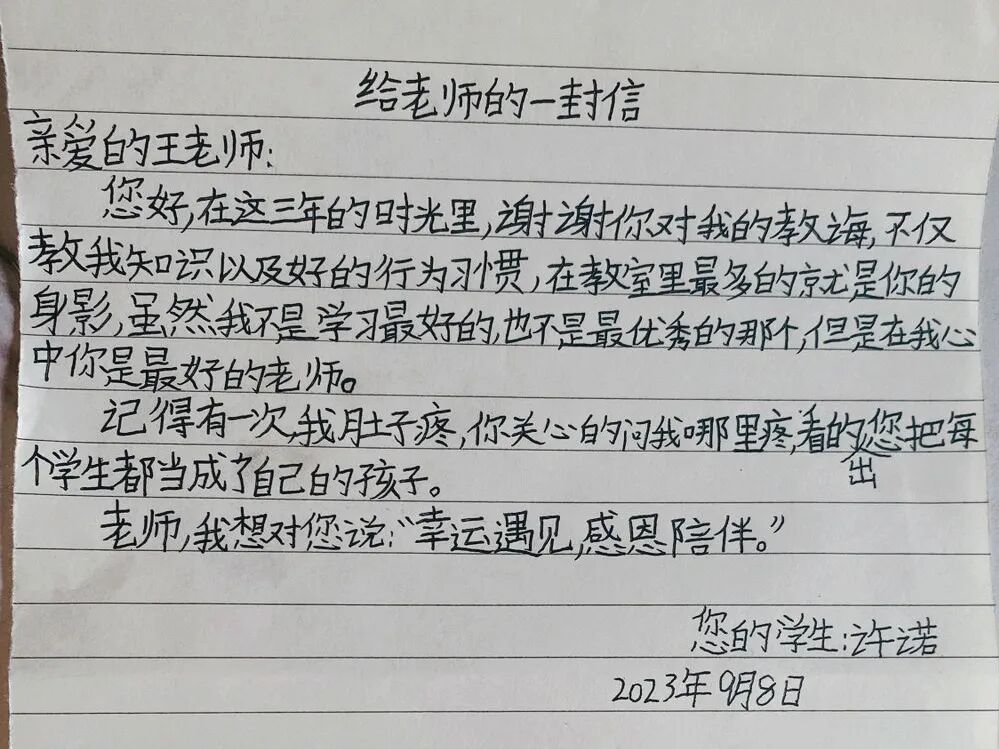 给老师的一封信
亲爱的王老师:
您好,在这三年的时光里,谢谢你对我的教诲,不仅
教我知识以及好的行为习惯,在教室里最多的就是你的
身影,虽然我不是学习最好的,也不是最优秀的那个,但是在我心
中你是最好的老师。
记得有一次,我肚子疼,你关心的问我哪里疼,看的出您把每
个学生都当成了自己的孩子。
老师,我想对您说:“幸运遇见,感恩陪伴。”
您的学生:许诺
2023年9月8日